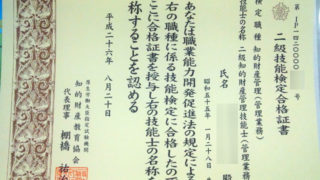 第IP一四二〇〇〇〇号
二級技能検定合格証書
検定職種 知的財産管理(管理業務)
技能士の名称 二級知的財産管理技能士(管理業務)
氏名 殿
昭和五十五年一月二十八日
あなたは職業能力開発促進法の規定による
右の職種に係る技能検定に合格したので
ここに合格証書を授与し右の技能士の名称を
称することを認める
平成二十六年八月二十日
厚生労働大臣指定試験機関
知的財産教育協会
代表理事 棚橋祐